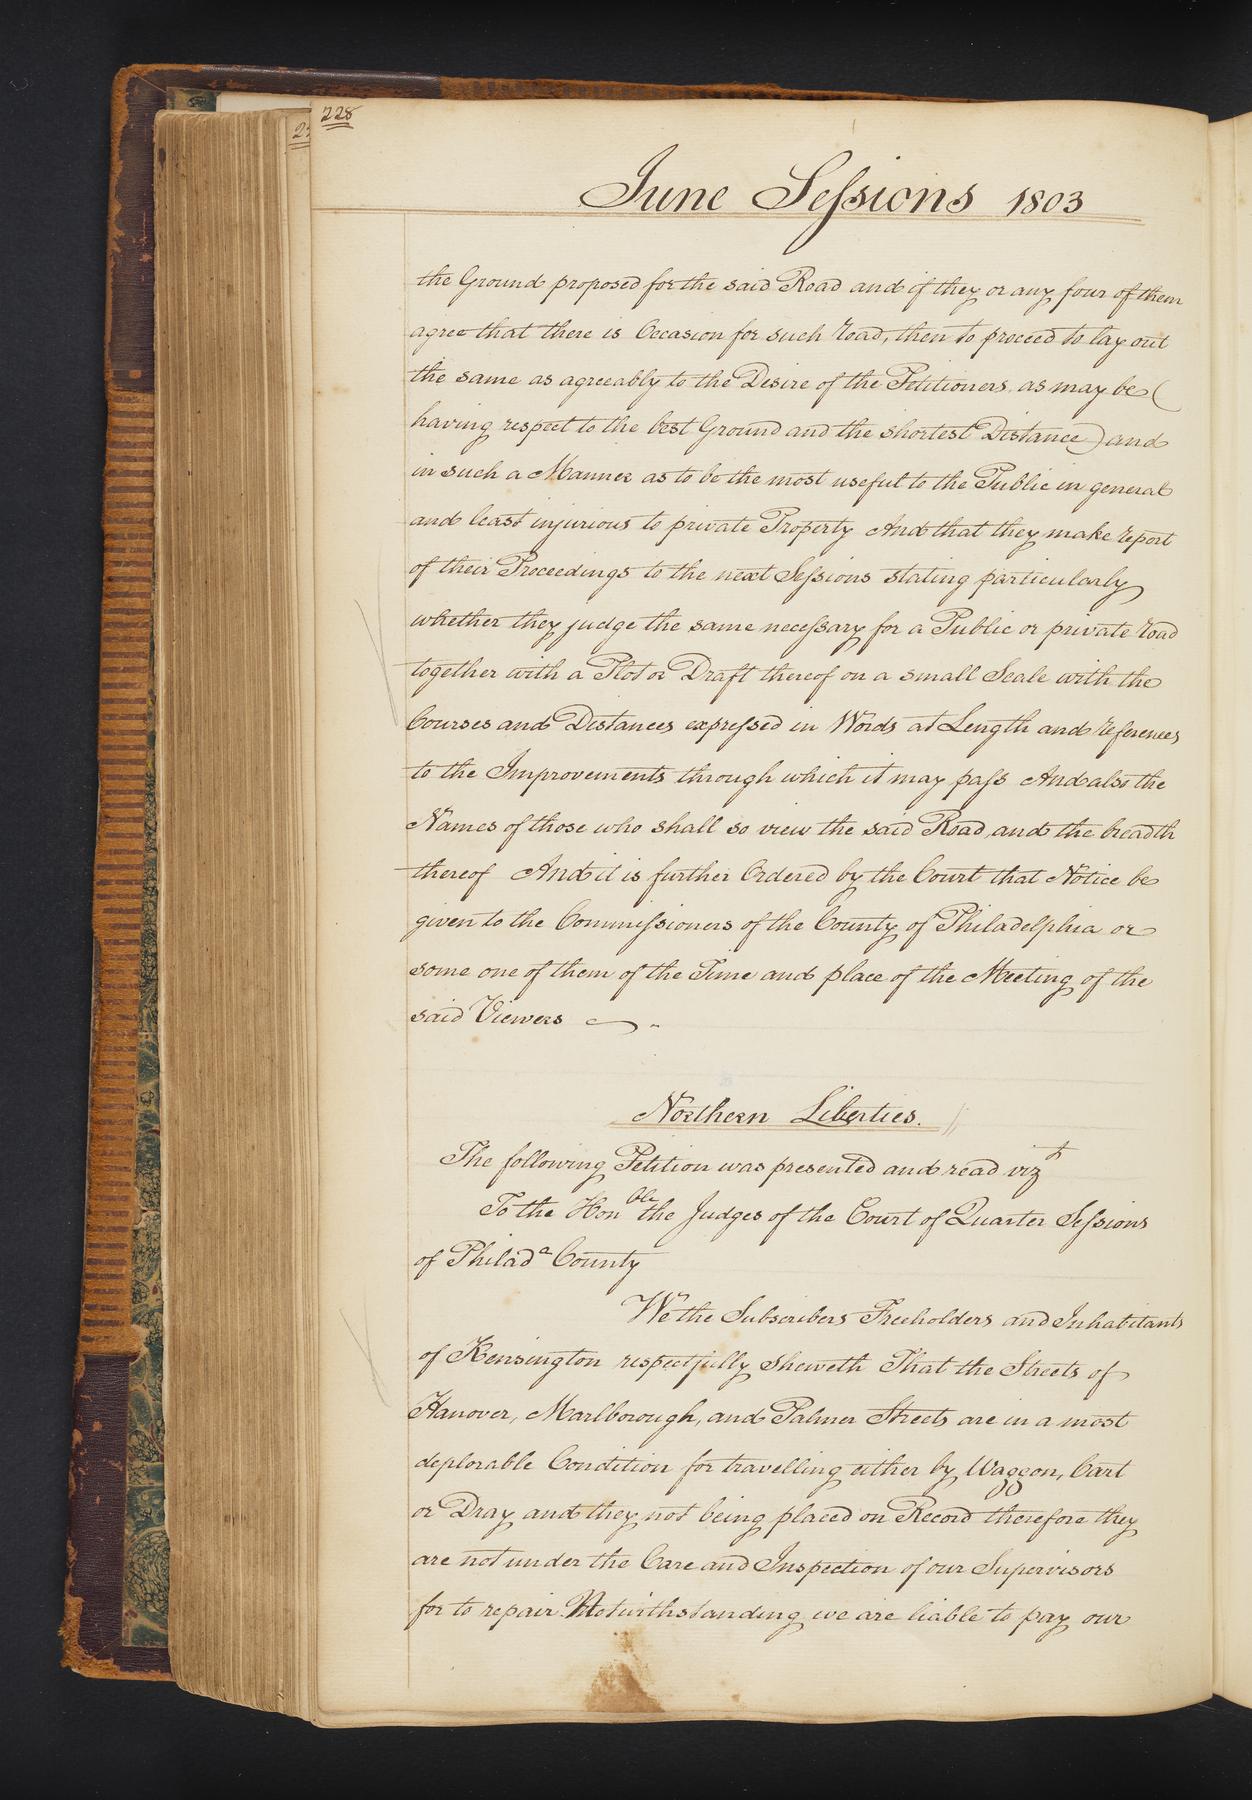 228
June Sessions 1803
the Ground proposed for the said Road and if they or any four of them
agree that there is Occasion for such road, then to proceed to lay out
the same as agreeably to the Desire of the Petitioners as may be (
having respect to the best Ground and the shortest Distance) and
in such a Manner as to be the most useful to the Public in general
and least injurious to private Property And that they make report
of their Proceedings to the next Sessions stating particularly
whether they judge the same necessary for a Public or private road
together with a Plot or Draft thereof on a small Scale with the
Courses and Distances expressed in Words at Length and references
to the Improvements through which it may pass And also the
Names of those who shall so view the said Road and the breadth
thereof And it is further Ordered by the Court that Notice be
given to the Commissioners of the County of Philadelphia or
some one of them of the Time and place of the Meeting of the
said Viewers
Northern Liberties.
The following Petition was presented and read vizt
To the Honble the Judges of the Court of Quarter Sessions
of Philada County
We the Subscribers Freeholders and Inhabitants
of Kensington respectfully sheweth That the Streets of
Hanover, Marlborough, and Palmer Streets are in a most
deplorable Condition for travelling either by Waggon, Cart
or Dray and they not being placed on Record therefore they
are not under the Care and Inspection of our Supervisors
for to repair Notwithstanding we are liable to pay our